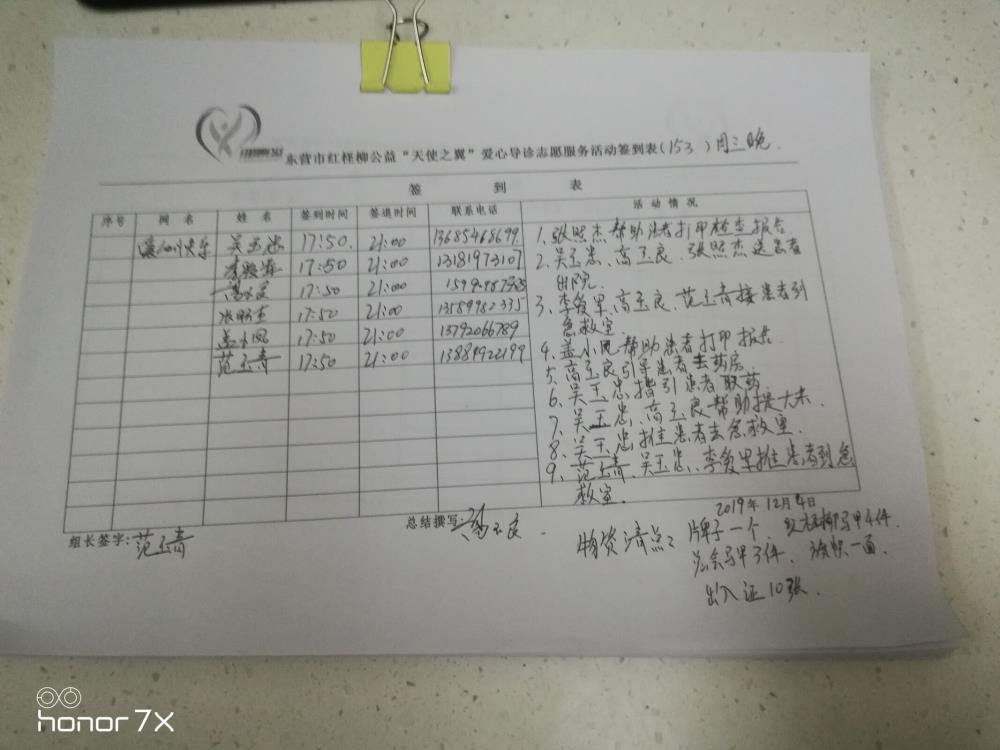 东营市红柽柳公益“天使之翼”爱心导诊志愿服务活动签到表(153)周三晚
签 到 表
序号 网名 姓名 签到时间 签退时间 联系电话 活动情况
吴玉忠 17:50. 21:00 13685468699
17:50 21:00 13181973107
17:50 21:00
张照杰 17:50 21:00 13589982335
盖小凤 17:50 21:00 13792066789
范玉青 17:50 21:00 13884922199
1、张照杰帮助患者打印检查报告
2、吴玉忠、高玉良、张照杰送患者
出院.
3、李爱军、高玉良、范玉青接患者到
急救室.
4、盖小凤帮助患者打印报告
5、高玉良引导患者去药房.
6、吴玉忠指引患者取药.
7、吴玉忠、高玉良帮助提大米.
8、吴玉忠推患者去急救室.
9、范玉青、吴玉忠、李爱军推患者到急
救室.
2019年12月4日
组长签字:范玉青
总结撰写:高玉良.
物资清点: 牌子一个. 红柽柳马甲4件.
总会马甲3件. 旗帜一面.
出入证10张.
honor 7X